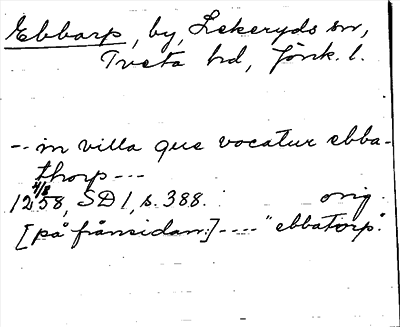 Ebbarp, by, Lekeryds sn,
Tveta hd, Jönk. l.
-- in villa que vocatur ebba-
thorp ---
4/8
1258, SD 1, s. 388. orig.
[på frånsidan:] ---- "ebbatorp".